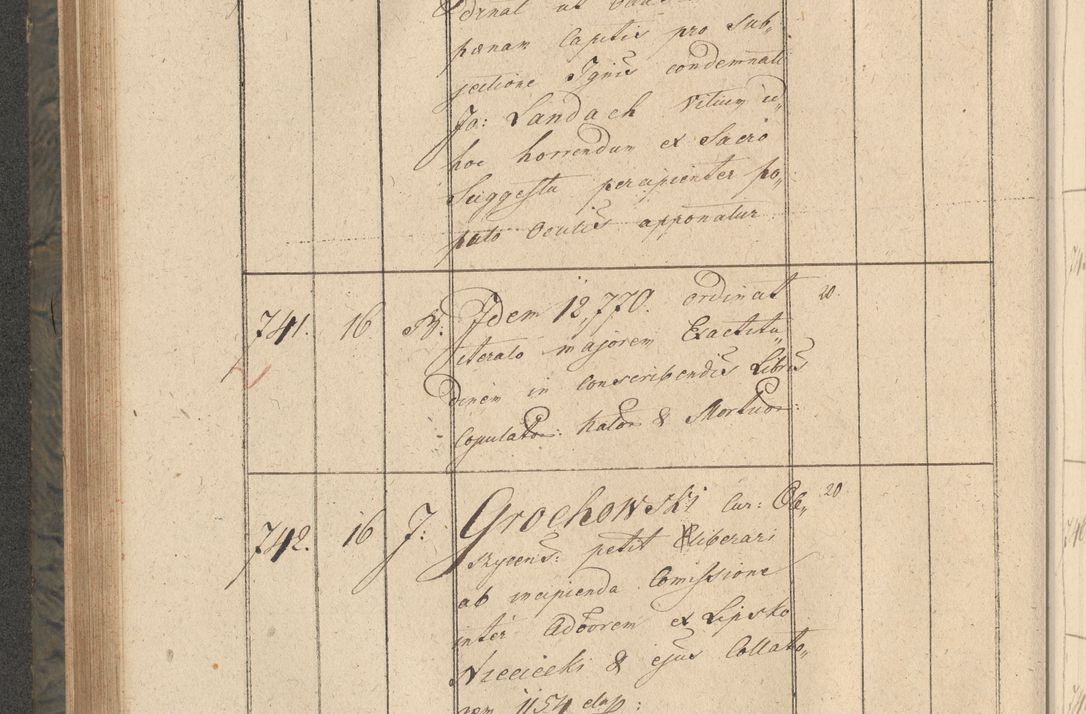 pœnam Capitis pro Sub„
jectione Ignis condemnati
Ja: Landach Vitium ad„
hoc horrendum ex Sacro
Suggestu percipienter po„
pulo Oculis apponatur
741. 16 B. Idem 12,770. ordinat 20.
iterato majorem Exactitu„
dinem in Conscribendis Libris
Copulator: Nator & Mortuor:
742. 16 J: Grochowski Cur: Ob„ 20
rzycens: petit liberari
ab incipienda Comissione
inter Adoorem ex Lipsko
& ejus Collato„
rem 1154 elap: